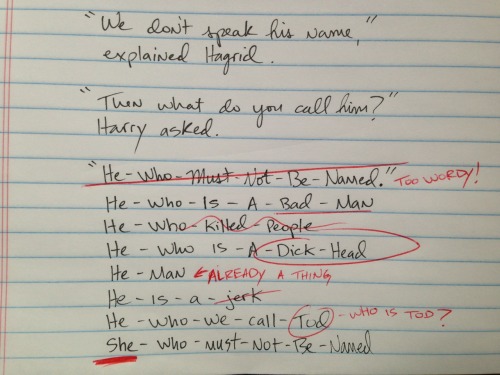 "We don't speak his name,"
explained Hagrid.
"Then what do you call him?"
Harry asked.
"He-Who-Must-Not-Be-Named." TOO WORDY!
He-Who-Is-A-Bad-Man
He-Who-Killed-People
He-Who Is-A-Dick-Head
He-Man ALREADY A THING
He-Is-a-jerk
He-Who-We-call-Tod-WHO IS TOD?
She-Who-must-Not-Be-Named